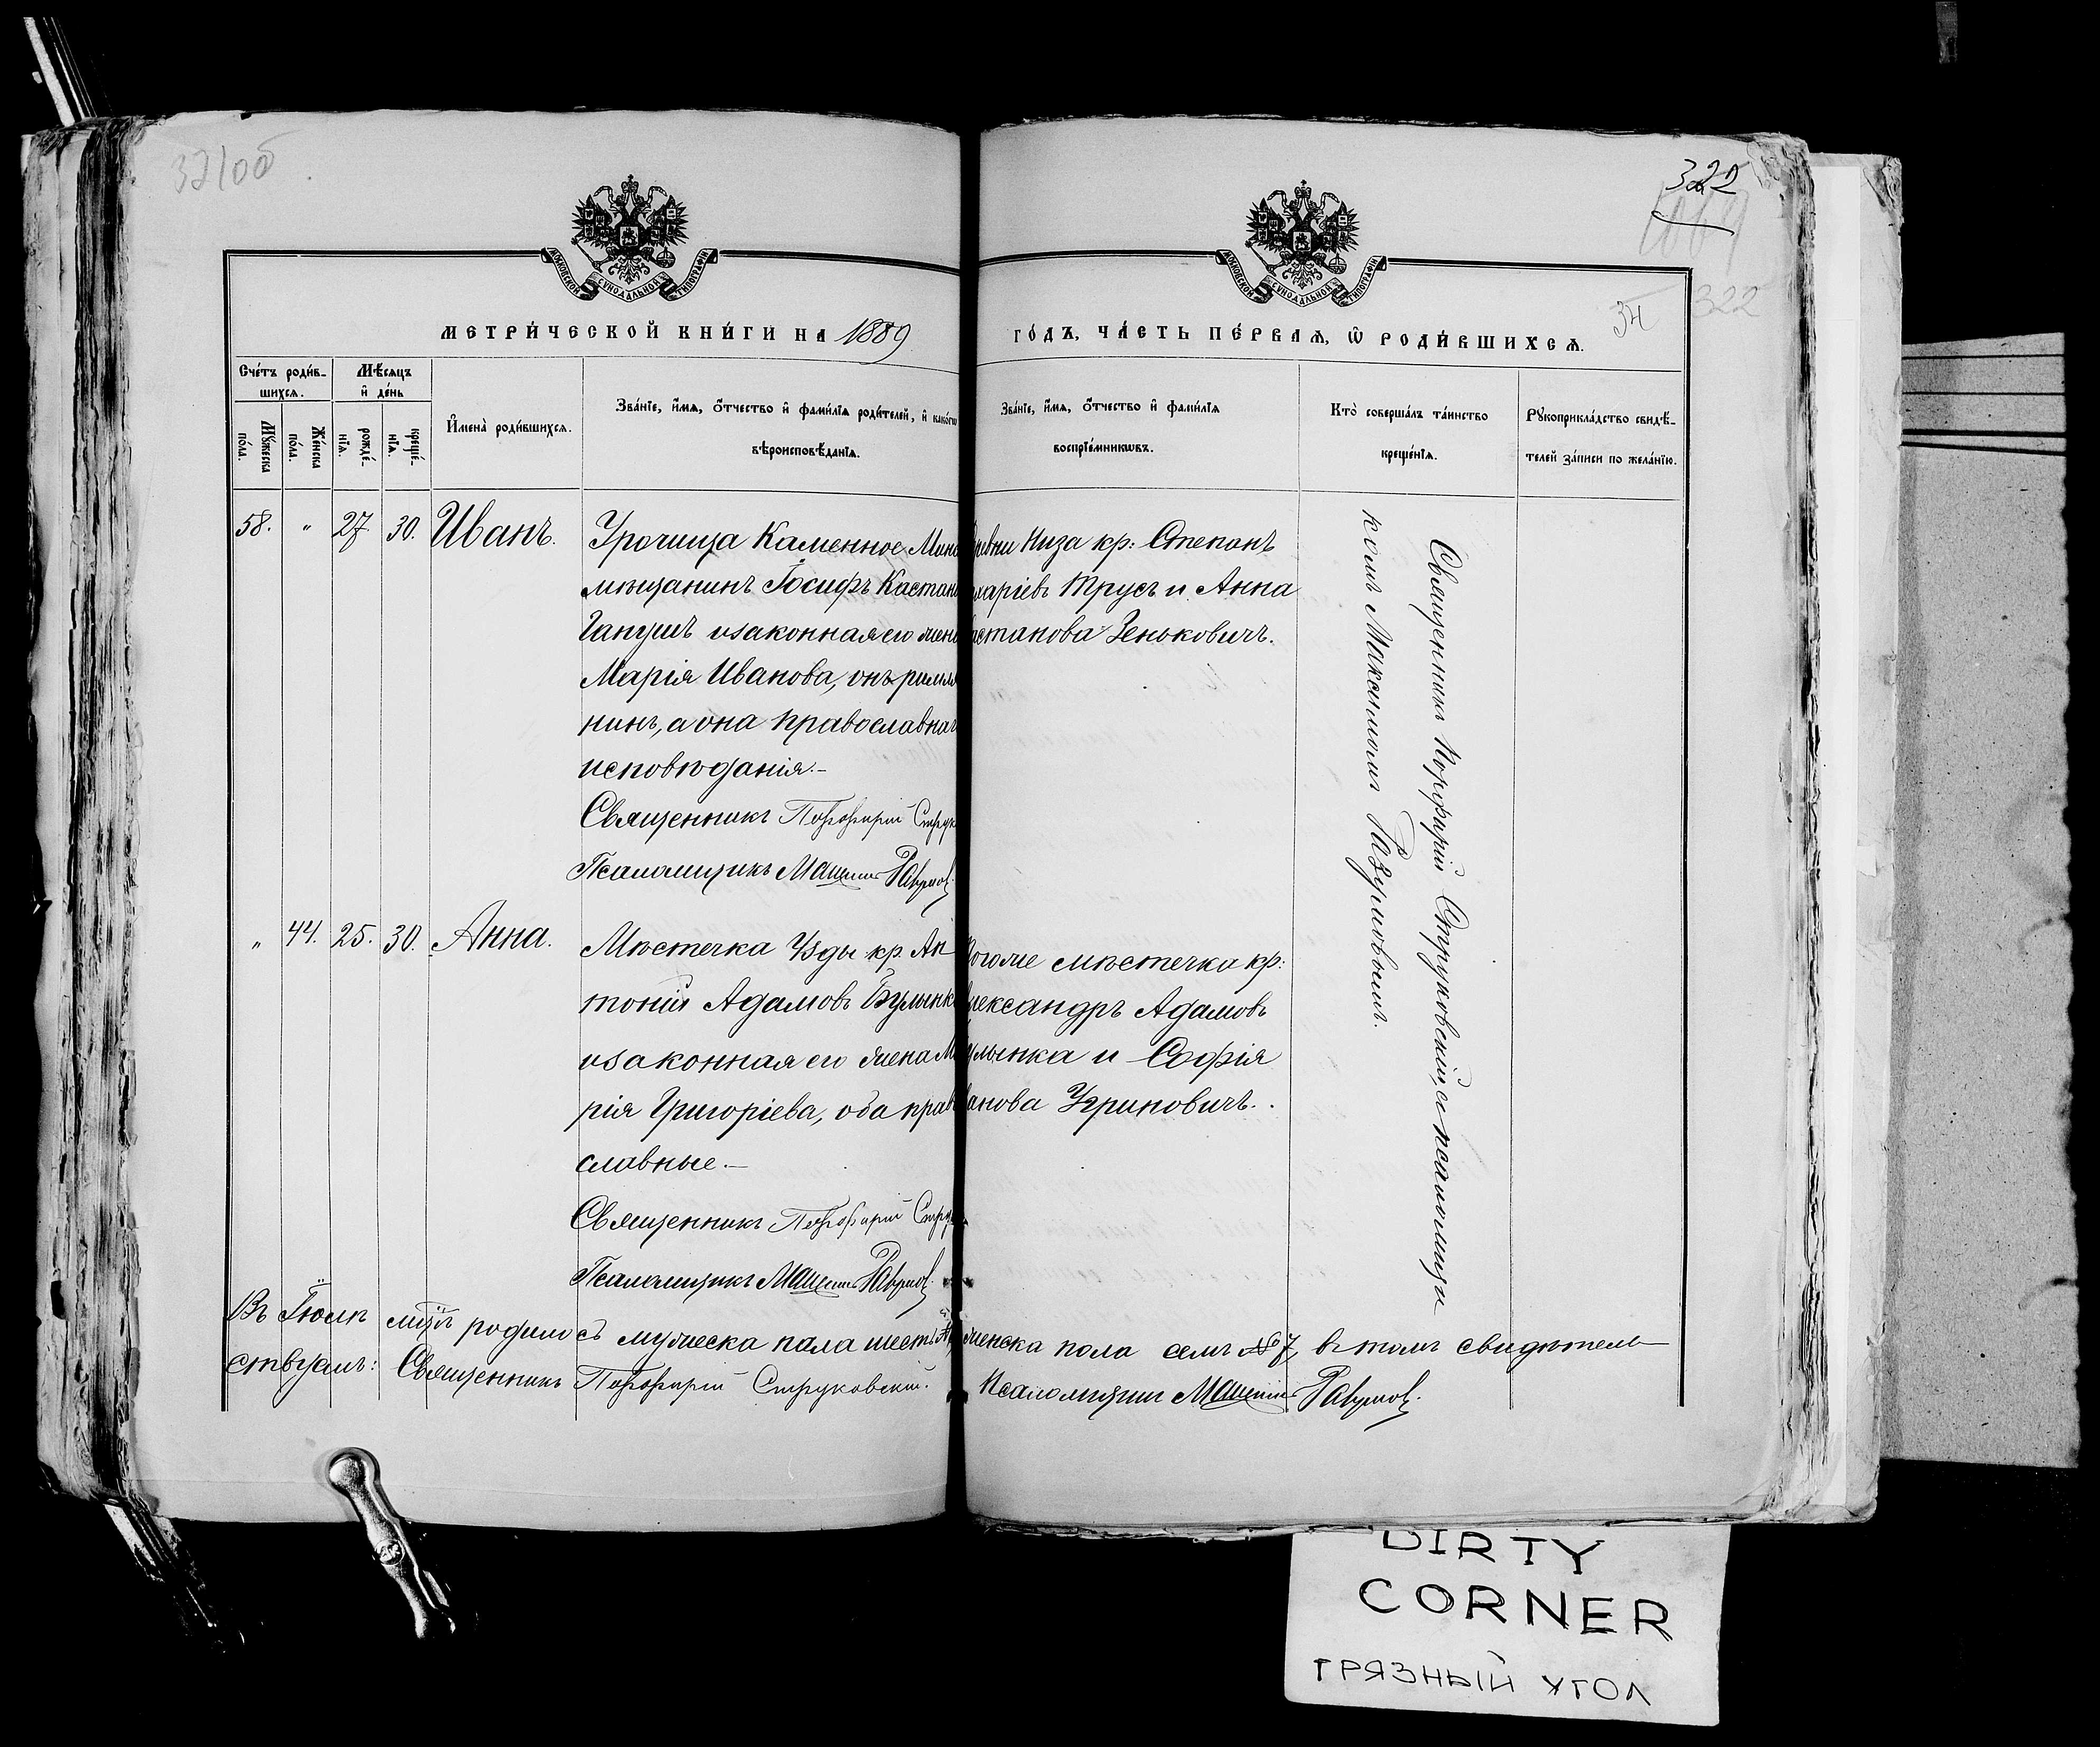 322
34
322
МОСКОВСКОЙ СУНОДАЛЬНОЙ ТИПОГРАФІИ
МОСКОВСКОЙ СУНОДАЛЬНОЙ ТИПОГРАФІИ
МЕТРИ́ЧЕСКОЙ КНИ́ГИ НА 1889
ГО́ДЪ, ЧА́СТЬ ПЕ́РВАЯ, Ѽ РОДИ́ВШИХСЯ.
Сче́тъ роди́в-
шихся.
Мѣ́сяцъ
и҆ де́нь
Мꙋ́жеска по́ла.
Же́нска по́ла.
рожде́-
нїя.
креще́-
нїя.
И҆мена̀ роди́вшихся.
Зва́нїе, и҆́мя, ѻ҆́тчество и҆ фами́лїя роди́телей, и҆ како́гѡ
вѣроисповѣ́данїя.
Зва́нїе, и҆́мя, ѻ҆́тчество и҆ фами́лїя
воспрїе́мникѡвъ.
Кто̀ соверша́лъ та́инство
креще́нїя.
Рꙋкоприкла́дство свидѣ́-
телей за́писи по жела́нїю.
58. " 27. 30. Иванъ.
Урочища Каменное Минс
мѣщанинъ Іосифъ Кастан
Гапушъ и законная его жен
Марія Иванова, онъ римля
нинъ, а она православнаг
исповѣданія.–
Священникъ Порфирій Струк
Псаломщикъ Максимъ Разумов
ревни Низа кр: Степанъ
ларіевъ Трусъ и Анна
астанова Зеньковичъ.
Священникъ Порфирій Струковскій, съ псаломщи
комъ Максимомъ Разумовымъ.
" 44. 25. 30. Анна.
Мѣстечка Узды кр. Ан
тоній Адамовъ Булынк
и законная его жена М
рія Григоріева, оба прав
славные.–
Священникъ Порфирій Стру
Псаломщикъ Максимъ Разумов.
тогоже мѣстечка кр:
лександръ Адамовъ
улынка и Софія
анова Угриновичъ.
Въ Іюлѣ мцѣ родилось мужеска пола шесть женска пола семь №7, въ томъ свидѣтель
ствуемъ: Священникъ Порфирій Струковскій. Псаломщикъ Максимъ Разумов.
DIRTY
CORNER
ГРЯЗНЫЙ УГОЛ